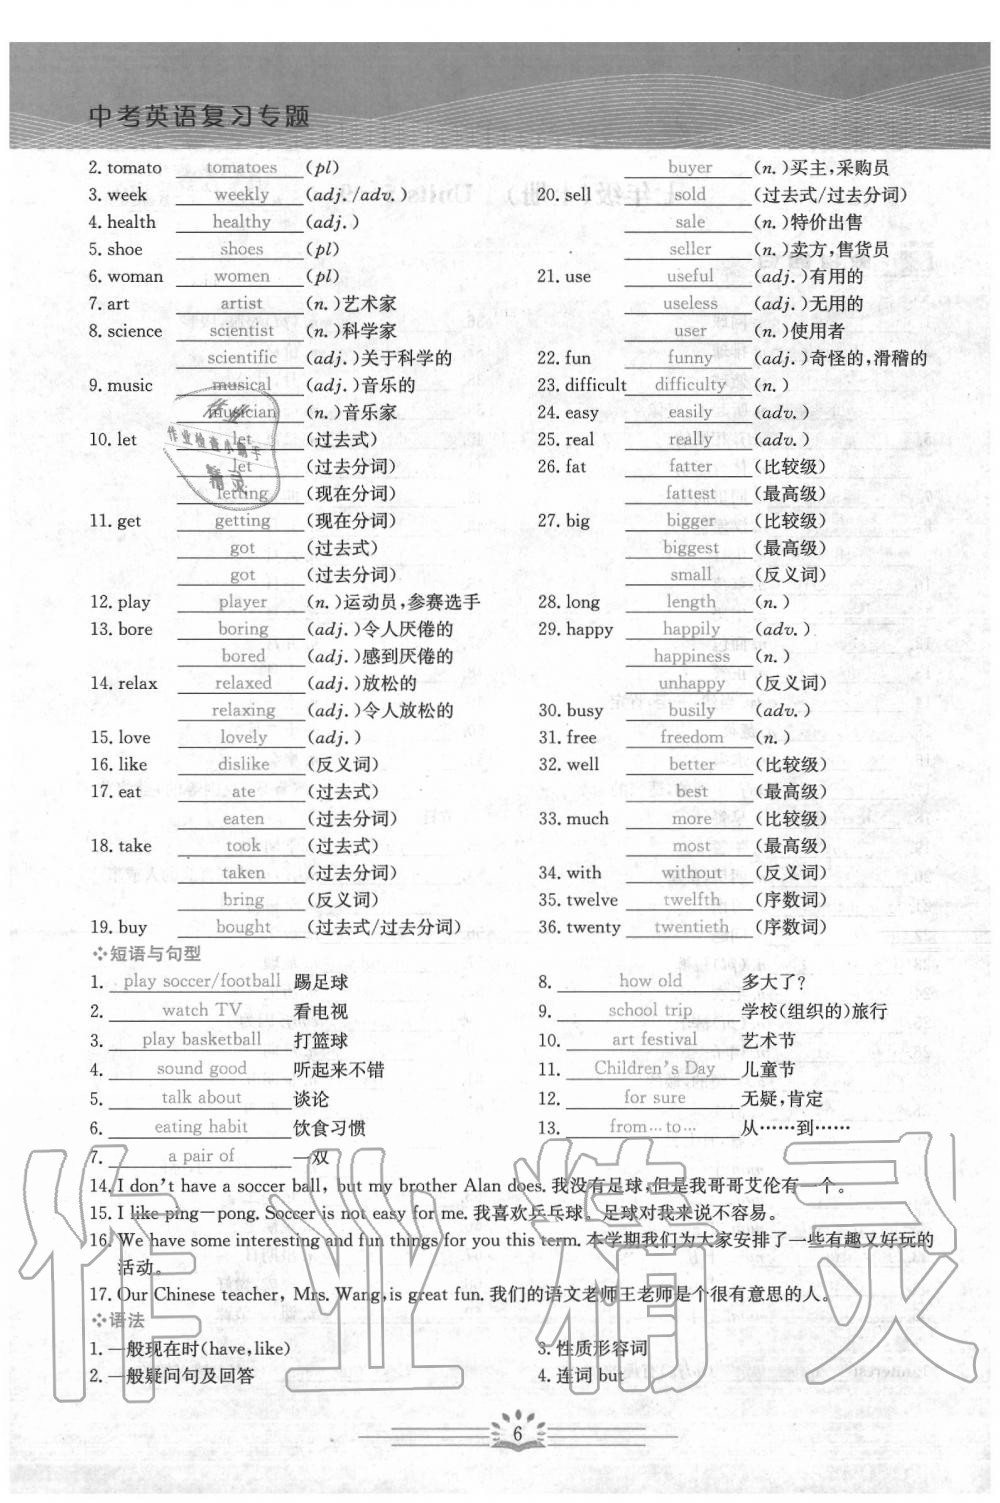 中考英语复习专题
2. tomato tomatoes (pl)
3. week weekly (adj./adv.)
4. health healthy (adj.)
5. shoe shoes (pl)
6. woman women (pl)
7. art artist (n.)艺术家
8. science scientist (n.)科学家
scientific (adj.)关于科学的
9. music musical (adj.)音乐的
musician (n.)音乐家
10. let let (过去式)
let (过去分词)
letting (现在分词)
11. get getting (现在分词)
got (过去式)
got (过去分词)
12. play player (n.)运动员,参赛选手
13. bore boring (adj.)令人厌倦的
bored (adj.)感到厌倦的
14. relax relaxed (adj.)放松的
relaxing (adj.)令人放松的
15. love lovely (adj.)
16. like dislike (反义词)
17. eat ate (过去式)
eaten (过去分词)
18. take took (过去式)
taken (过去分词)
bring (反义词)
19. buy bought (过去式/过去分词)
buyer (n.)买主,采购员
20. sell sold (过去式/过去分词)
sale (n.)特价出售
seller (n.)卖方,售货员
21. use useful (adj.)有用的
useless (adj.)无用的
user (n.)使用者
22. fun funny (adj.)奇怪的,滑稽的
23. difficult difficulty (n.)
24. easy easily (adv.)
25. real really (adv.)
26. fat fatter (比较级)
fattest (最高级)
27. big bigger (比较级)
biggest (最高级)
small (反义词)
28. long length (n.)
29. happy happily (adv.)
happiness (n.)
unhappy (反义词)
30. busy busily (adv.)
31. free freedom (n.)
32. well better (比较级)
best (最高级)
33. much more (比较级)
most (最高级)
34. with without (反义词)
35. twelve twelfth (序数词)
36. twenty twentieth (序数词)
短语与句型
1. play soccer/football 踢足球
2. watch TV 看电视
3. play basketball 打篮球
4. sound good 听起来不错
5. talk about 谈论
6. eating habit 饮食习惯
7. a pair of 一双
8. how old 多大了?
9. school trip 学校(组织的)旅行
10. art festival 艺术节
11. Children's Day 儿童节
12. for sure 无疑,肯定
13. from…to… 从……到……
14. I don't have a soccer ball, but my brother Alan does. 我没有足球,但是我哥哥艾伦有一个。
15. I like ping-pong. Soccer is not easy for me. 我喜欢乒乓球。足球对我来说不容易。
16. We have some interesting and fun things for you this term. 本学期我们为大家安排了一些有趣又好玩的
活动。
17. Our Chinese teacher, Mrs. Wang,is great fun. 我们的语文老师王老师是个很有意思的人。
语法
1. 一般现在时(have,like)
2. 一般疑问句及回答
3. 性质形容词
4. 连词 but
6
作业
作业检查小助手
精灵
作业精灵